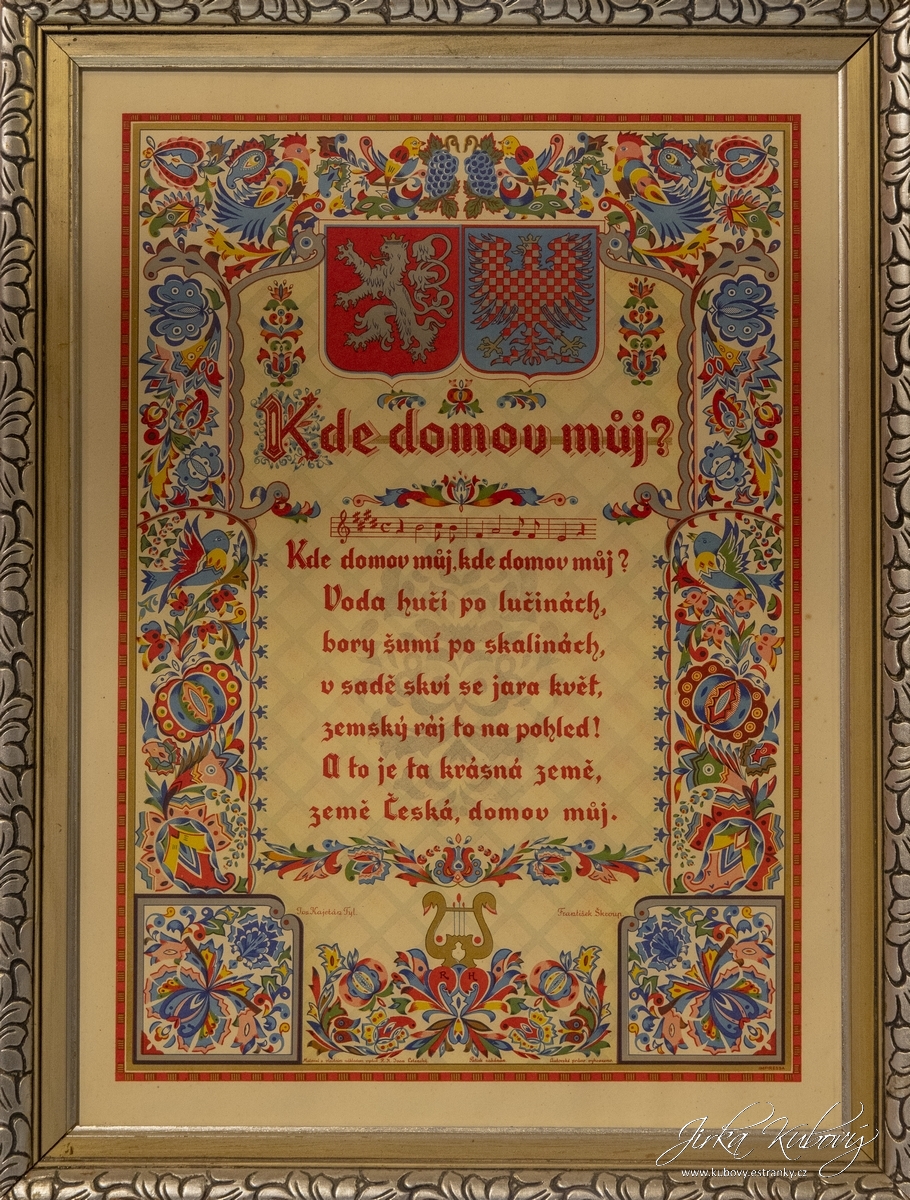 Kde domov můj?
Kde domov můj, kde domov můj?
Voda hučí po lučinách,
bory šumí po skalinách,
v sadě skví se jara květ,
zemský ráj to na pohled!
A to je ta krásná země,
země Česká, domov můj.
Jos. Kajetán Tyl. František Škroup.
R. H.
Jirka Kubový
www.kubovy.estranky.cz